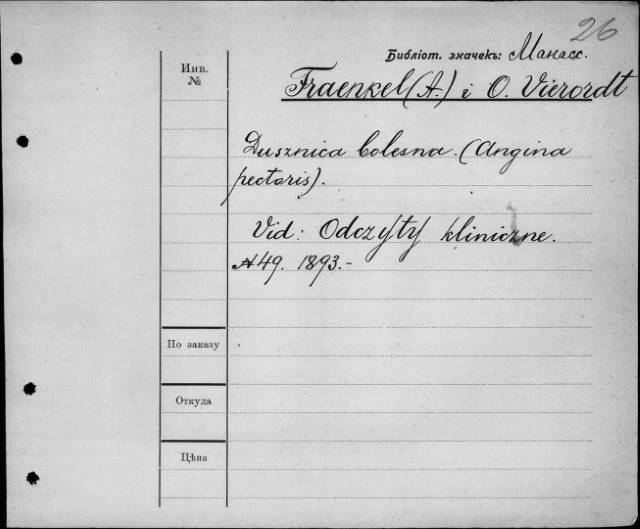 26
Библіот. значекъ: Манасс.
Инв.
№
Fraenkel (A.) i O. Vierordt
Dusznica bolesna. (Angina
pectoris).
Vid: Odczyty kliniczne.
№49. 1893.-
По заказу
Откуда
Цѣна